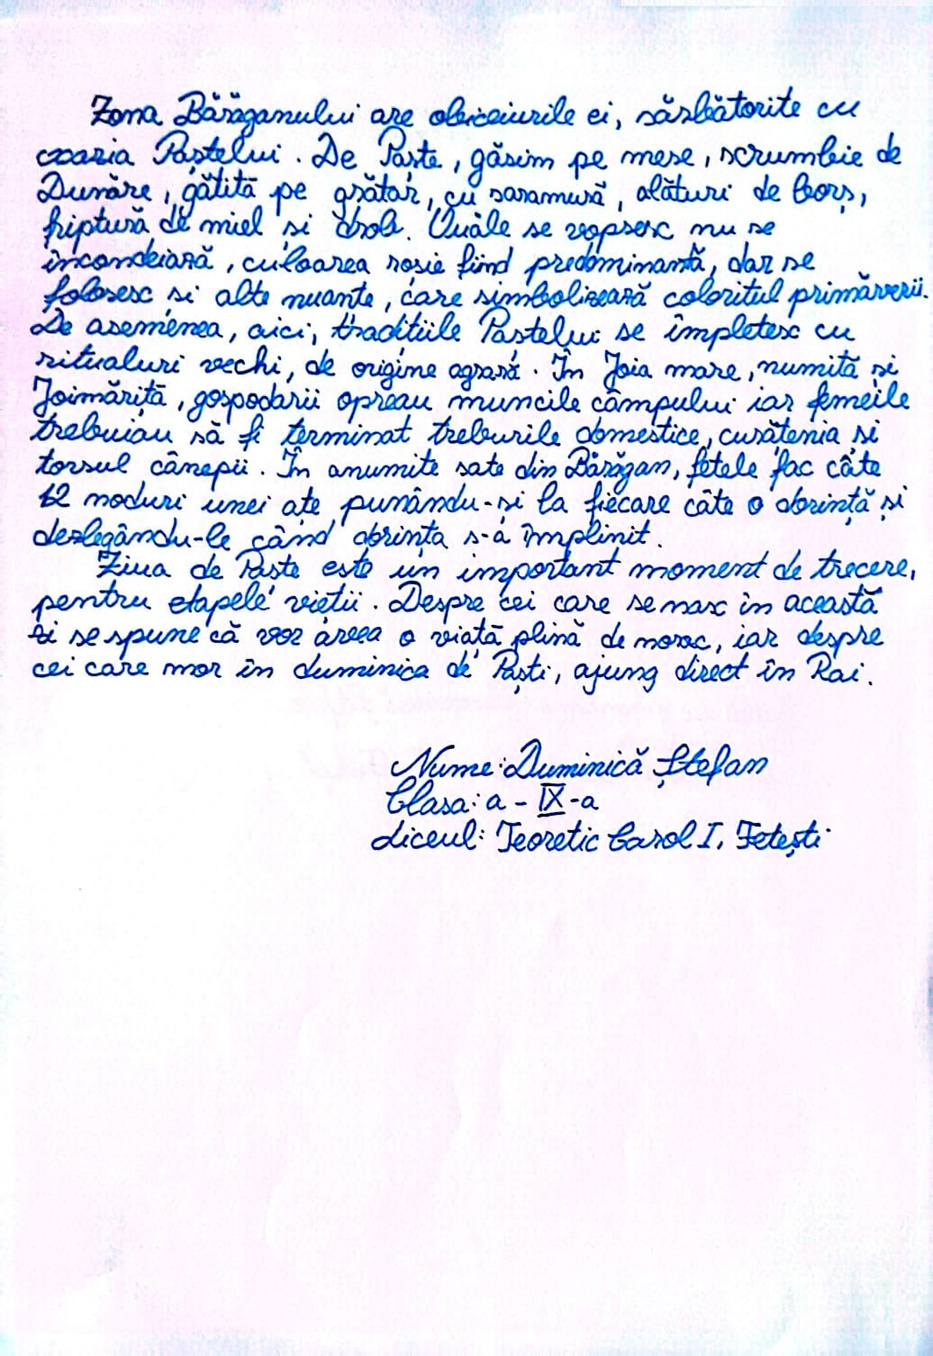 Zona Bărăganului are obiceiurile ei, sărbătorite cu
ocazia Paștelui. De Paște, găsim pe mese, scrumbie de
Dunăre, gătită pe grătar, cu saramură, alături de borș,
friptură de miel și drob. Ouăle se vopsesc nu se
încondeiază, culoarea roșie fiind predominantă, dar se
folosesc și alte nuanțe, care simbolizează coloritul primăverii.
De asemenea, aici, tradițiile Paștelui se împletesc cu
ritualuri vechi, de origine agrară. În Joia mare, numită și
Joimărița, gospodarii opreau muncile câmpului iar femeile
trebuiau să fi terminat treburile domestice, curățenia și
torsul cânepii. În anumite sate din Bărăgan, fetele fac câte
12 noduri unei ațe punându-și la fiecare câte o dorință și
dezlegându-le când dorința s-a împlinit.
Ziua de Paște este un important moment de trecere,
pentru etapele vieții. Despre cei care se nasc în această
zi se spune că vor avea o viață plină de noroc, iar despre
cei care mor în duminica de Paști, ajung direct în Rai.
Nume: Duminică Ștefan
Clasa: a - IX-a
Liceul: Teoretic Carol I, Fetești